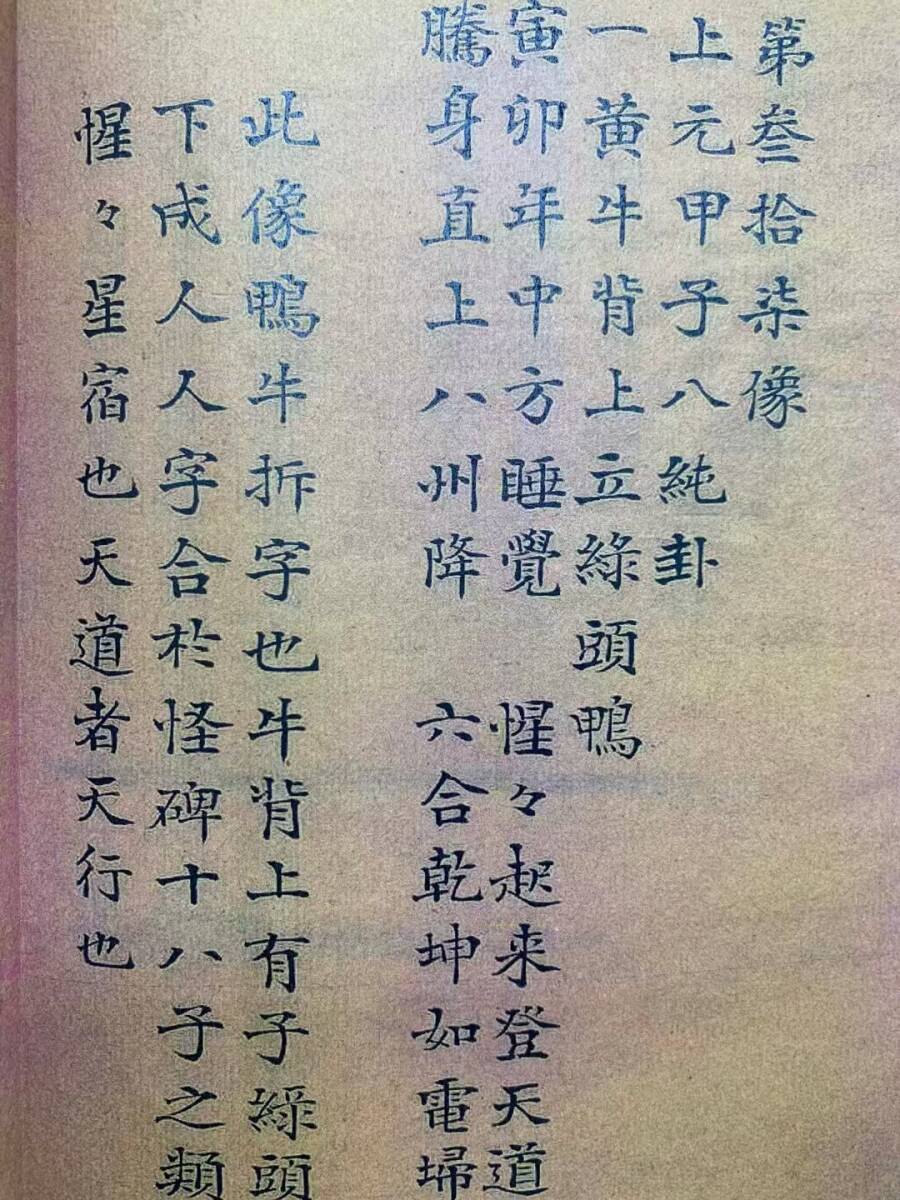 第叁拾柒像
上元甲子八純卦
一黃牛背上立綠頭鴨
寅卯年中方睡覺　惺々起来登天道
騰身直上八州降　六合乾坤如電埽
此像鴨牛拆字也牛背上有子綠頭
下成人人字合於怪碑十八子之類
惺々星宿也天道者天行也